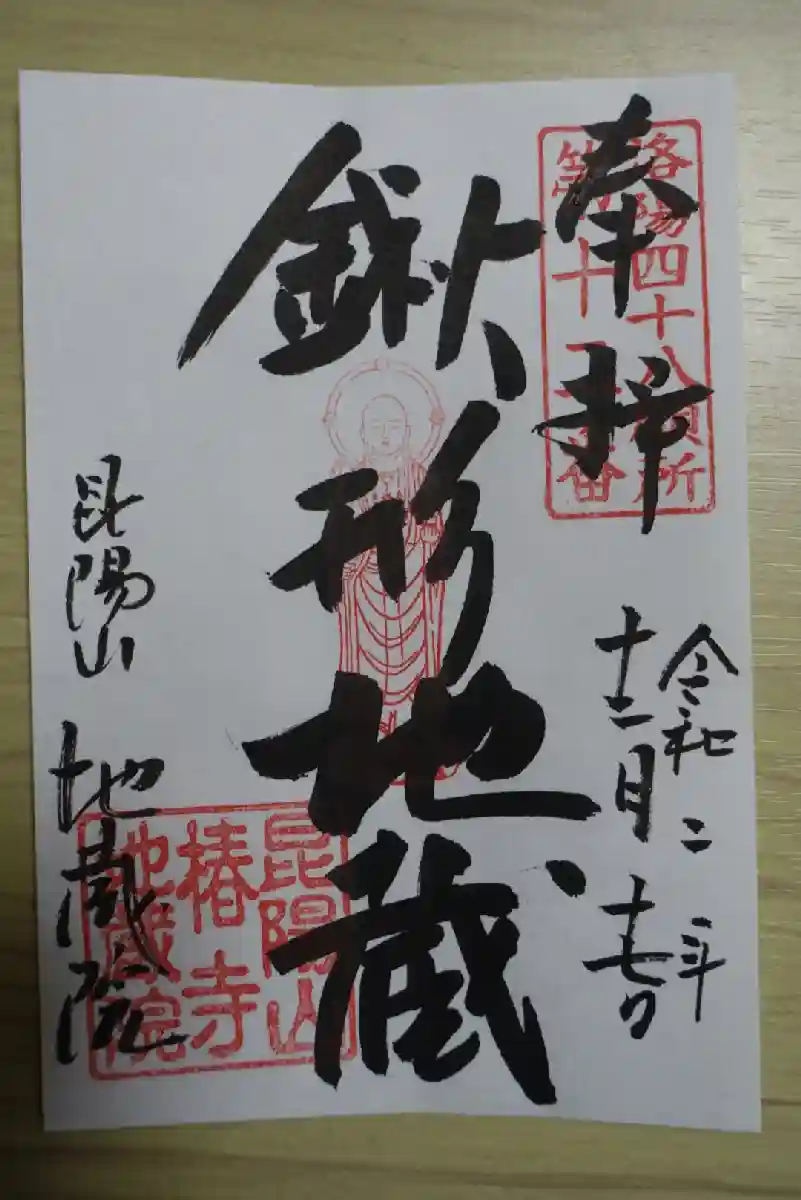 奉拝
洛陽四十八願所
令和二年
十二月十七日
鍬形地蔵
昆陽山 地蔵院
昆陽山
椿寺
地蔵院